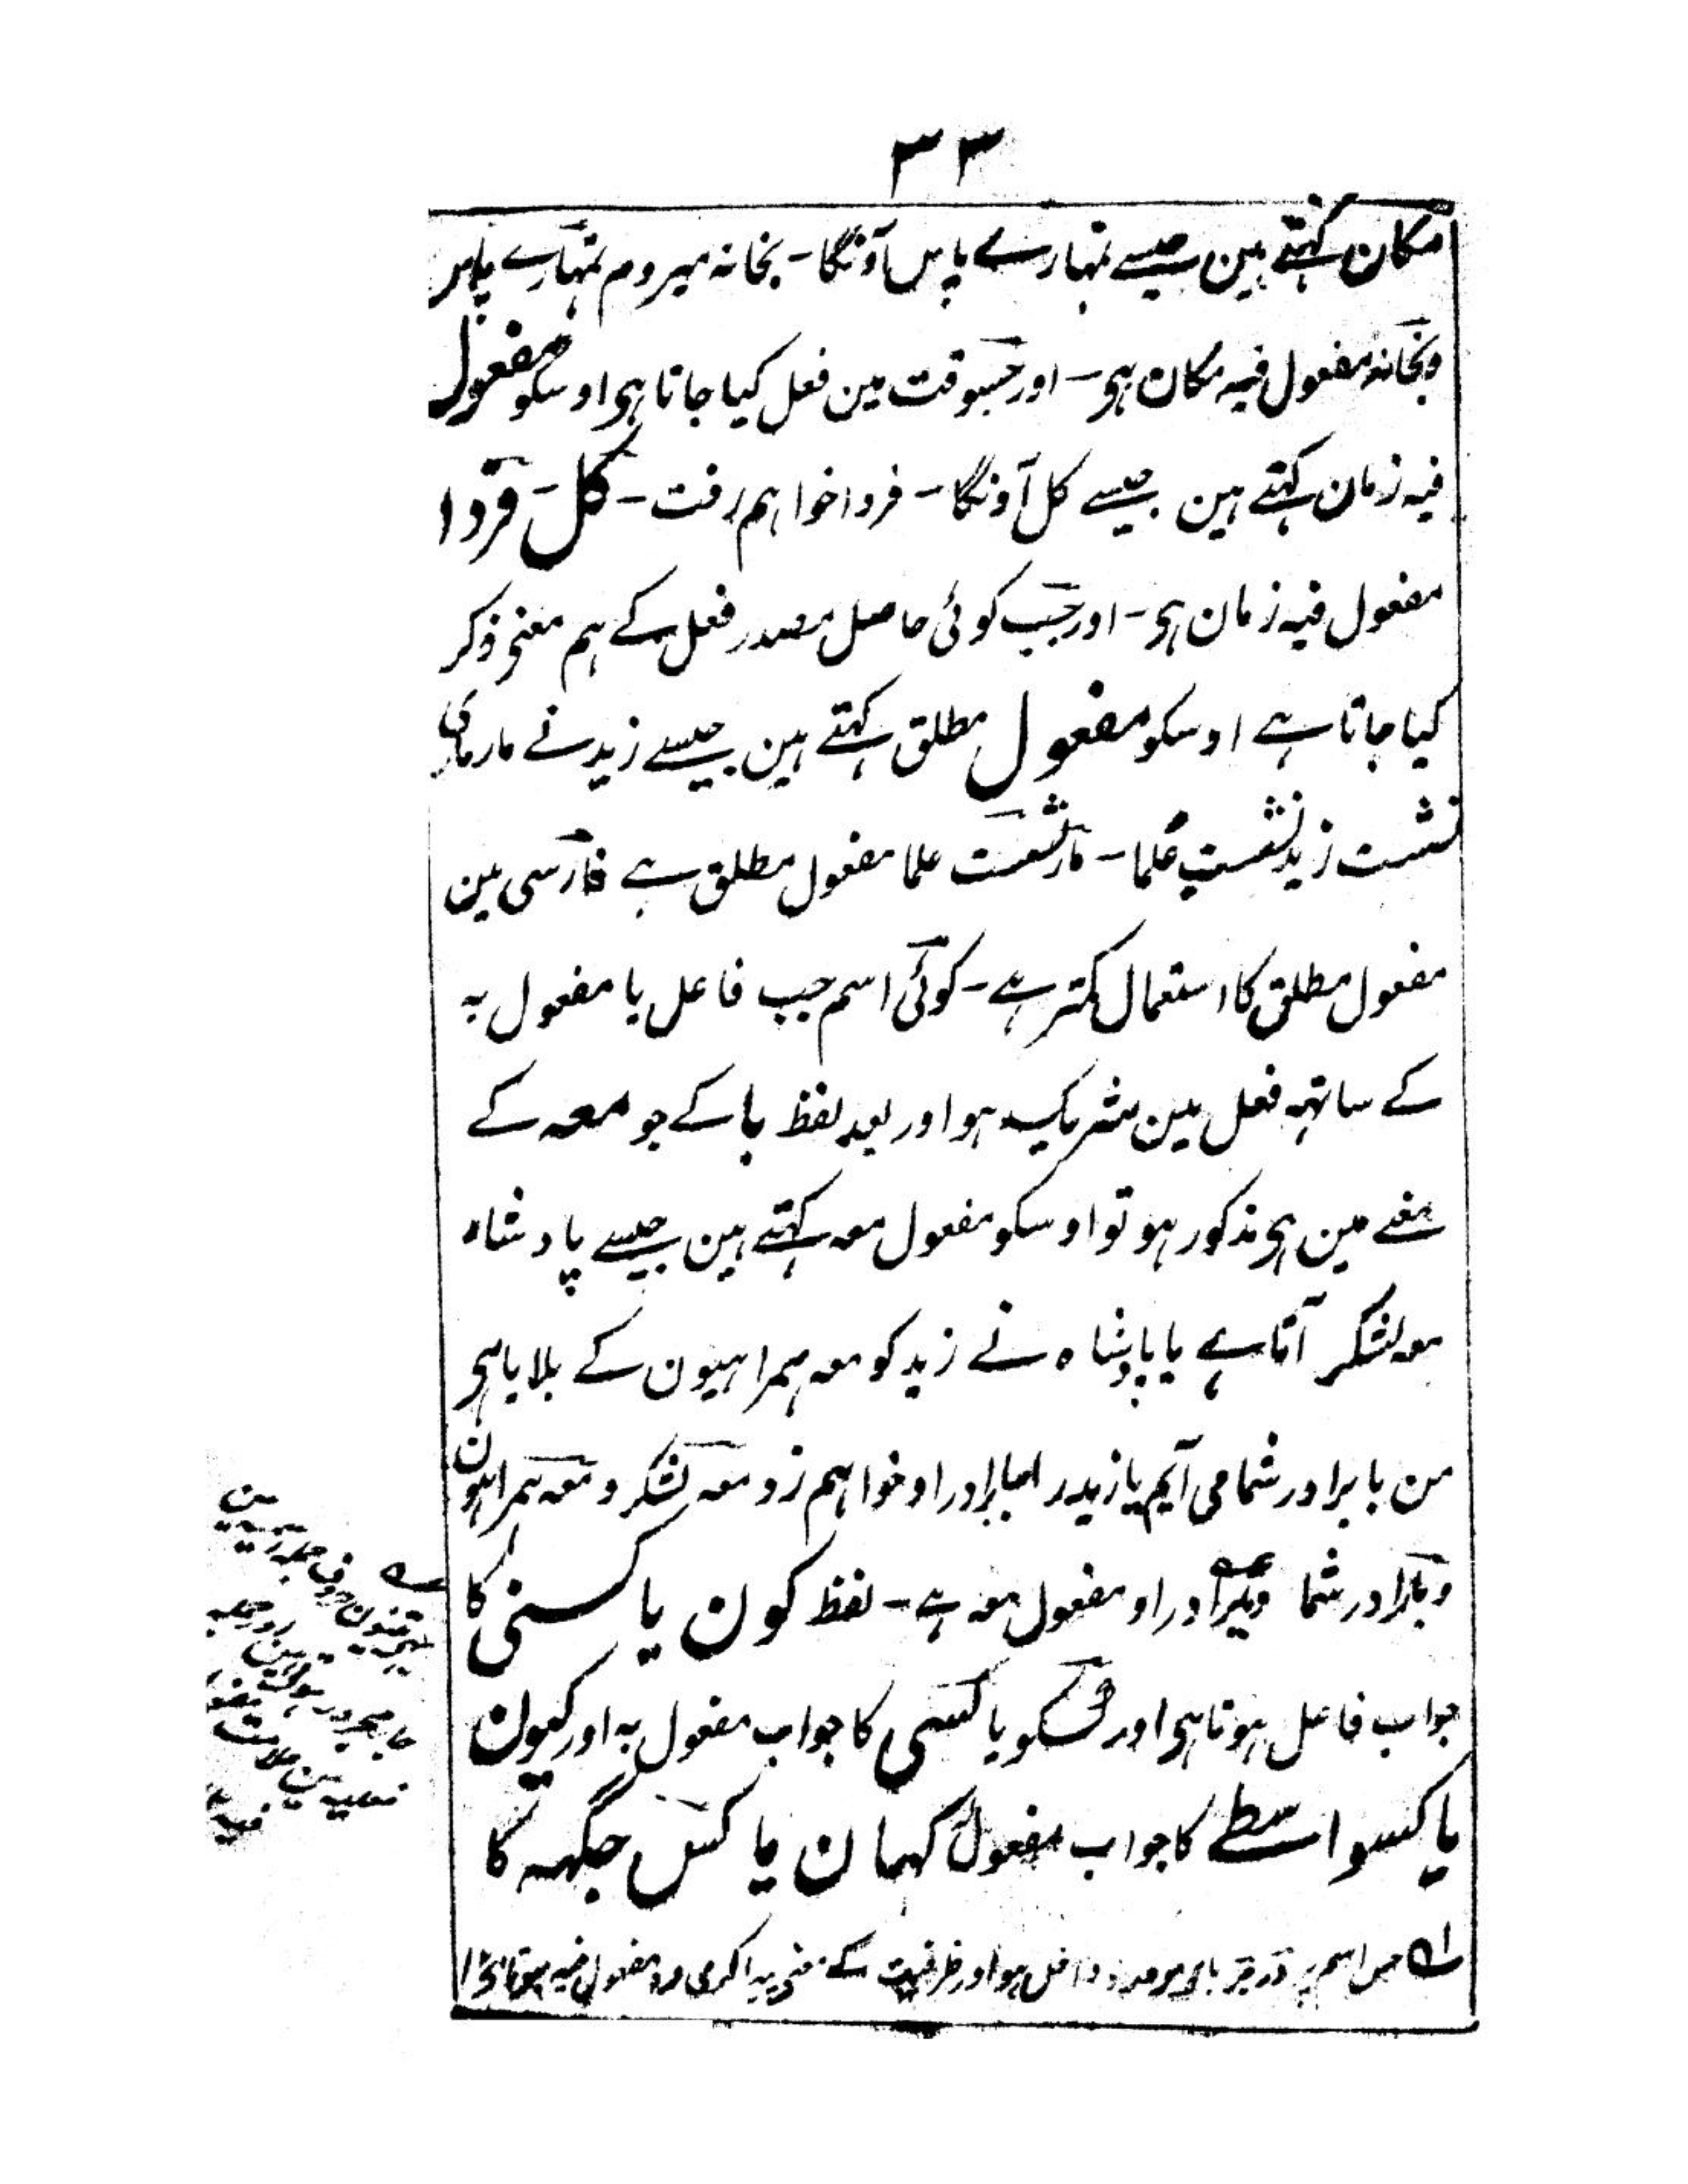 ۳۳
مکان کہتے ہین جیسے تمہارے پاس آونگا - بخانہ میروم تمہارے پاس
وبخانہ مفعول فیہ مکان ہی - اور جسوقت مین فعل کیا جاتا ہی اوسکو مفعول
فیہ زمان کہتے ہین جیسے کل آونگا - فردا خواہم رفت - کل - فردا
مفعول فیہ زمان ہی - اور جب کوئی حاصل مصدر فعل کے ہم معنی ذکر
کیا جاتا ہے اوسکو مفعول مطلق کہتے ہین جیسے زید نے مار ماری
نشست زید نشستِ علما - مار نشست علما مفعول مطلق ہے فارسی مین
مفعول مطلق کا استعمال کمتر ہے - کوئی اسم جب فاعل یا مفعول بہ
کے ساتہہ فعل مین شریک ہو اور بعد لفظ با کے جو معہ کے
معنے مین ہی مذکور ہو تو اوسکو مفعول معہ کہتے ہین جیسے پادشاہ
معہ لشکر آتا ہے یا پادشاہ نے زید کو معہ ہمراہیون کے بلایا ہی
من با برادر شما می آیم یا زید را با برادر او خواہم زد معہ لشکر و معہ ہمراہیون
و با برادر شما و با برادر او مفعول معہ ہے - لفظ کون یا کسنی کا
جواب فاعل ہوتا ہی اور کسکو یا کسی کا جواب مفعول بہ اور کیون
یا کسواسطے کا جواب مفعول لہ کہان یا کس جگہہ کا
لہ جس اسم پر در بر با داخل ہو اور ظرفیت کے معنی پیدا کری وہ مفعول فیہ ہوتا ہی